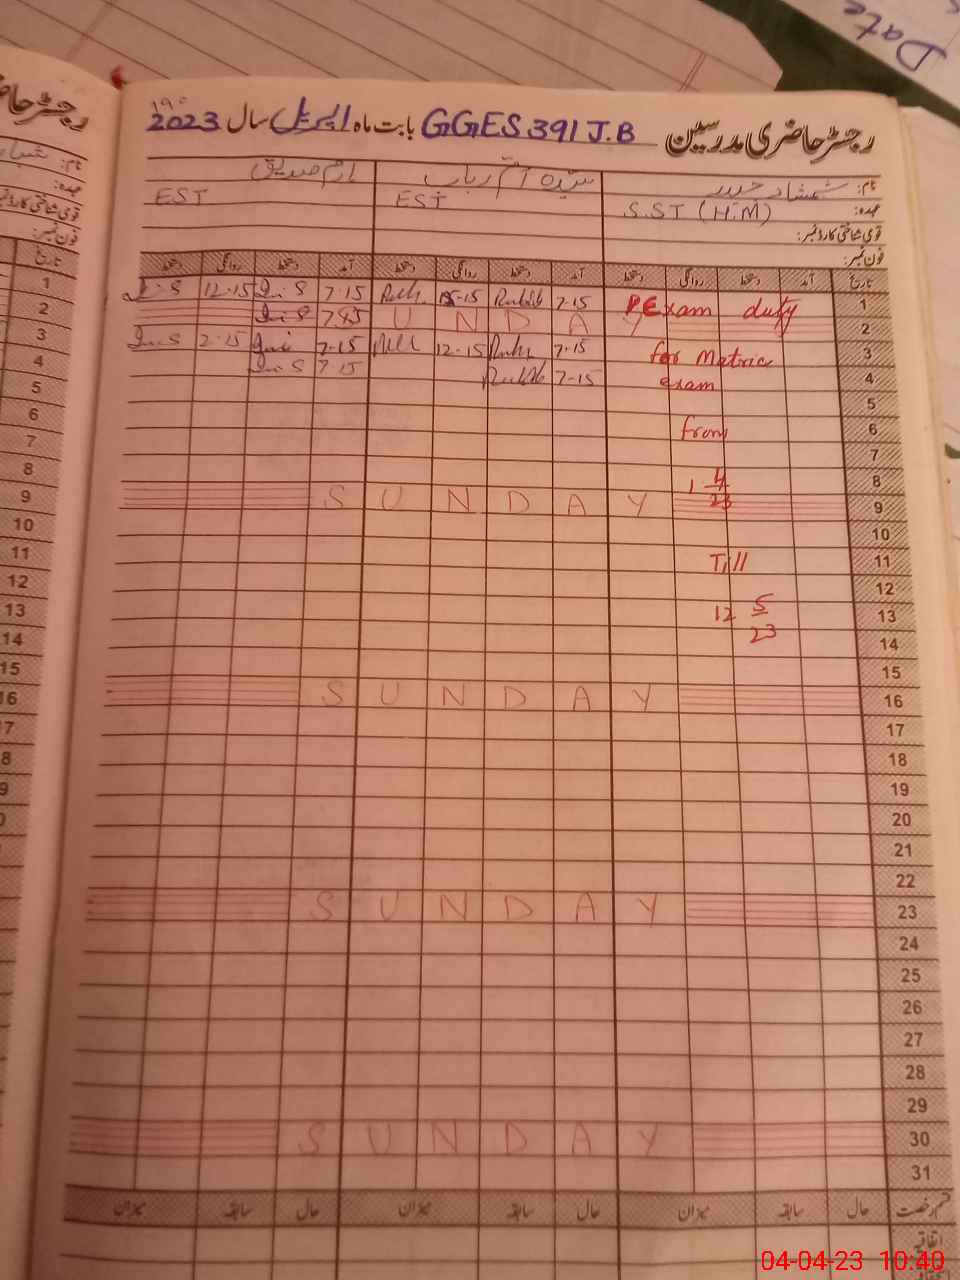 Date
رجسٹر حاضری مدرسین GGES 391 J.B بابت ماہ اپریل سال 2023
نام: شمشاد حیدر سیدہ ام رباب ارم صدیق
عہدہ: S.ST (H.M) EST EST
قومی شناختی کارڈ نمبر:
فون نمبر:
تاریخ آمد دستخط روانگی دستخط آمد دستخط روانگی دستخط آمد دستخط روانگی دستخط
1 Exam duty 7-15 Rubab 7-15 12-15
2 S U N D A Y
3 for Matric 7-15 12-15 7-15
4 exam 7-15 Rubab 7-15
5
6 from
7
8 1 4
9 23 S U N D A Y
10
11 Till
12
13 12 5
14 23
15
16 S U N D A Y
17
18
19
20
21
22
23 S U N D A Y
24
25
26
27
28
29
30 S U N D A Y
31
قسم رخصت حال سابقہ میزان حال سابقہ میزان حال سابقہ میزان
اتفاقیہ
04-04-23 10:40